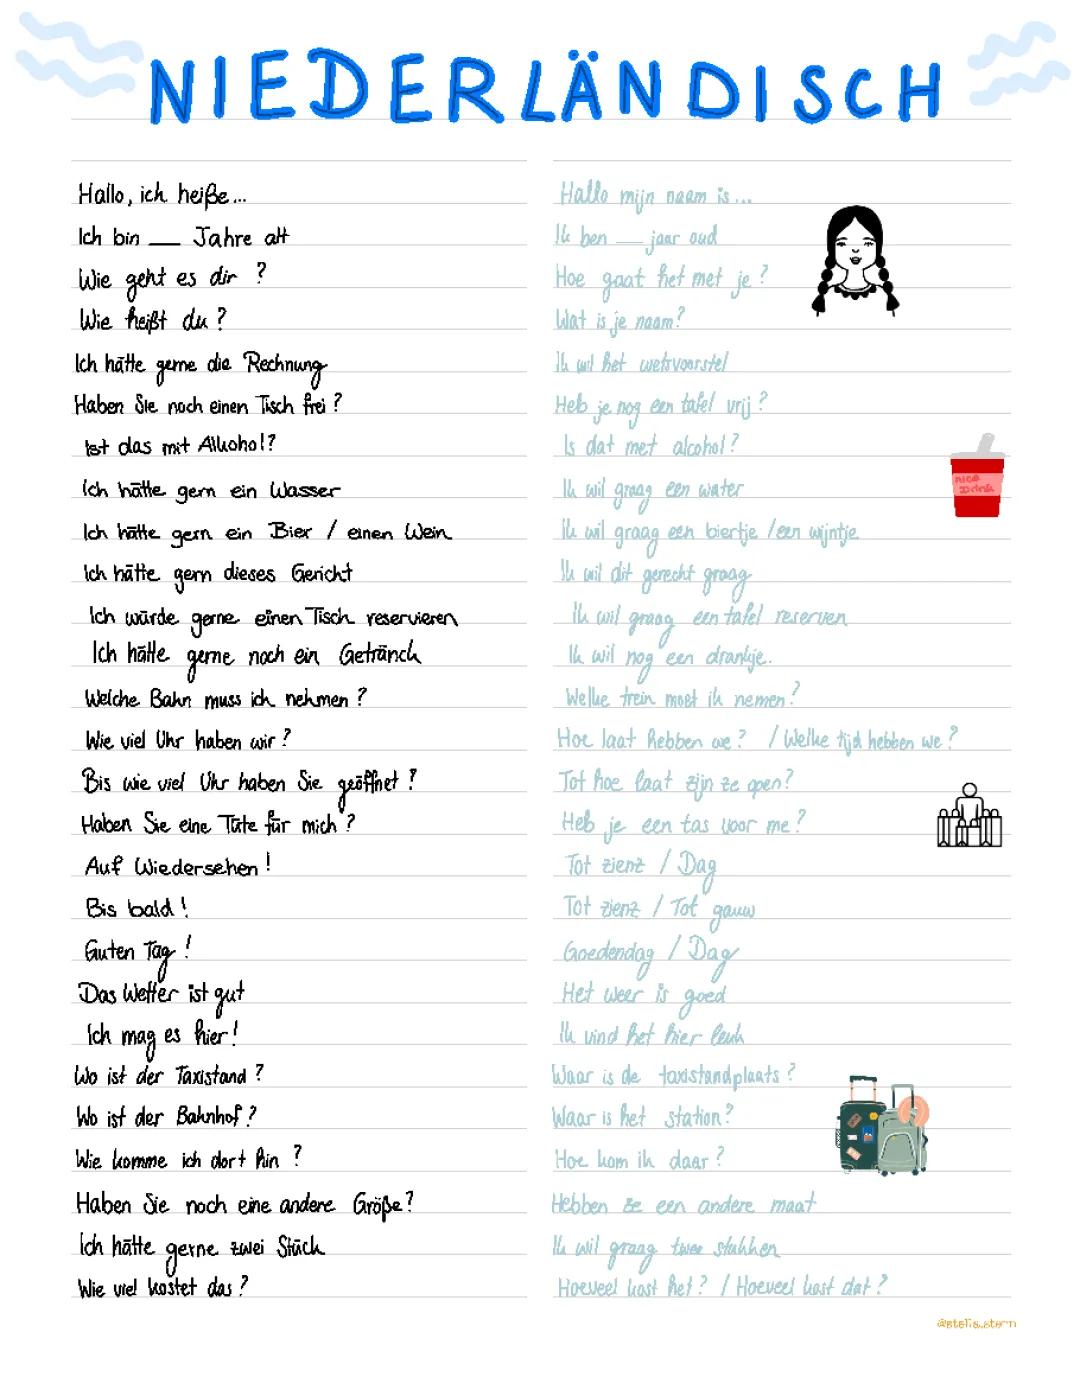 NIEDERLÄNDISCH
Hallo, ich heiße... Hallo mijn naam is ...
Ich bin ___ Jahre alt Ik ben ___ jaar oud
Wie geht es dir ? Hoe gaat het met je ?
Wie heißt du ? Wat is je naam?
Ich hätte gerne die Rechnung Ik wil het wetsvoorstel
Haben Sie noch einen Tisch frei ? Heb je nog een tafel vrij ?
Ist das mit Alkohol? Is dat met alcohol ?
Ich hätte gern ein Wasser Ik wil graag een water
nice Drink
Ich hätte gern ein Bier / einen Wein Ik wil graag een biertje /een wijntje
Ich hätte gern dieses Gericht Ik wil dit gerecht graag
Ich würde gerne einen Tisch reservieren Ik wil graag een tafel reserven
Ich hätte gerne noch ein Getränck Ik wil nog een drankje.
Welche Bahn muss ich nehmen ? Welke trein moet ik nemen?
Wie viel Uhr haben wir ? Hoe laat hebben we? / Welke tijd hebben we ?
Bis wie viel Uhr haben Sie geöffnet ? Tot hoe laat zijn ze open?
Haben Sie eine Tüte für mich ? Heb je een tas voor me ?
Auf Wiedersehen ! Tot zienz / Dag
Bis bald ! Tot zienz / Tot gauw
Guten Tag ! Goedendag / Dag
Das Wetter ist gut Het weer is goed
Ich mag es hier! Ik vind het hier leuk
Wo ist der Taxistand ? Waar is de taxistandplaats ?
Wo ist der Bahnhof ? Waar is het station?
Wie komme ich dort hin ? Hoe kom ik daar ?
Haben Sie noch eine andere Größe? Hebben ze een andere maat
Ich hätte gerne zwei Stück Ik wil graag twee stukken
Wie viel kostet das ? Hoeveel kost het ? / Hoeveel kost dat ?
@stella.stern